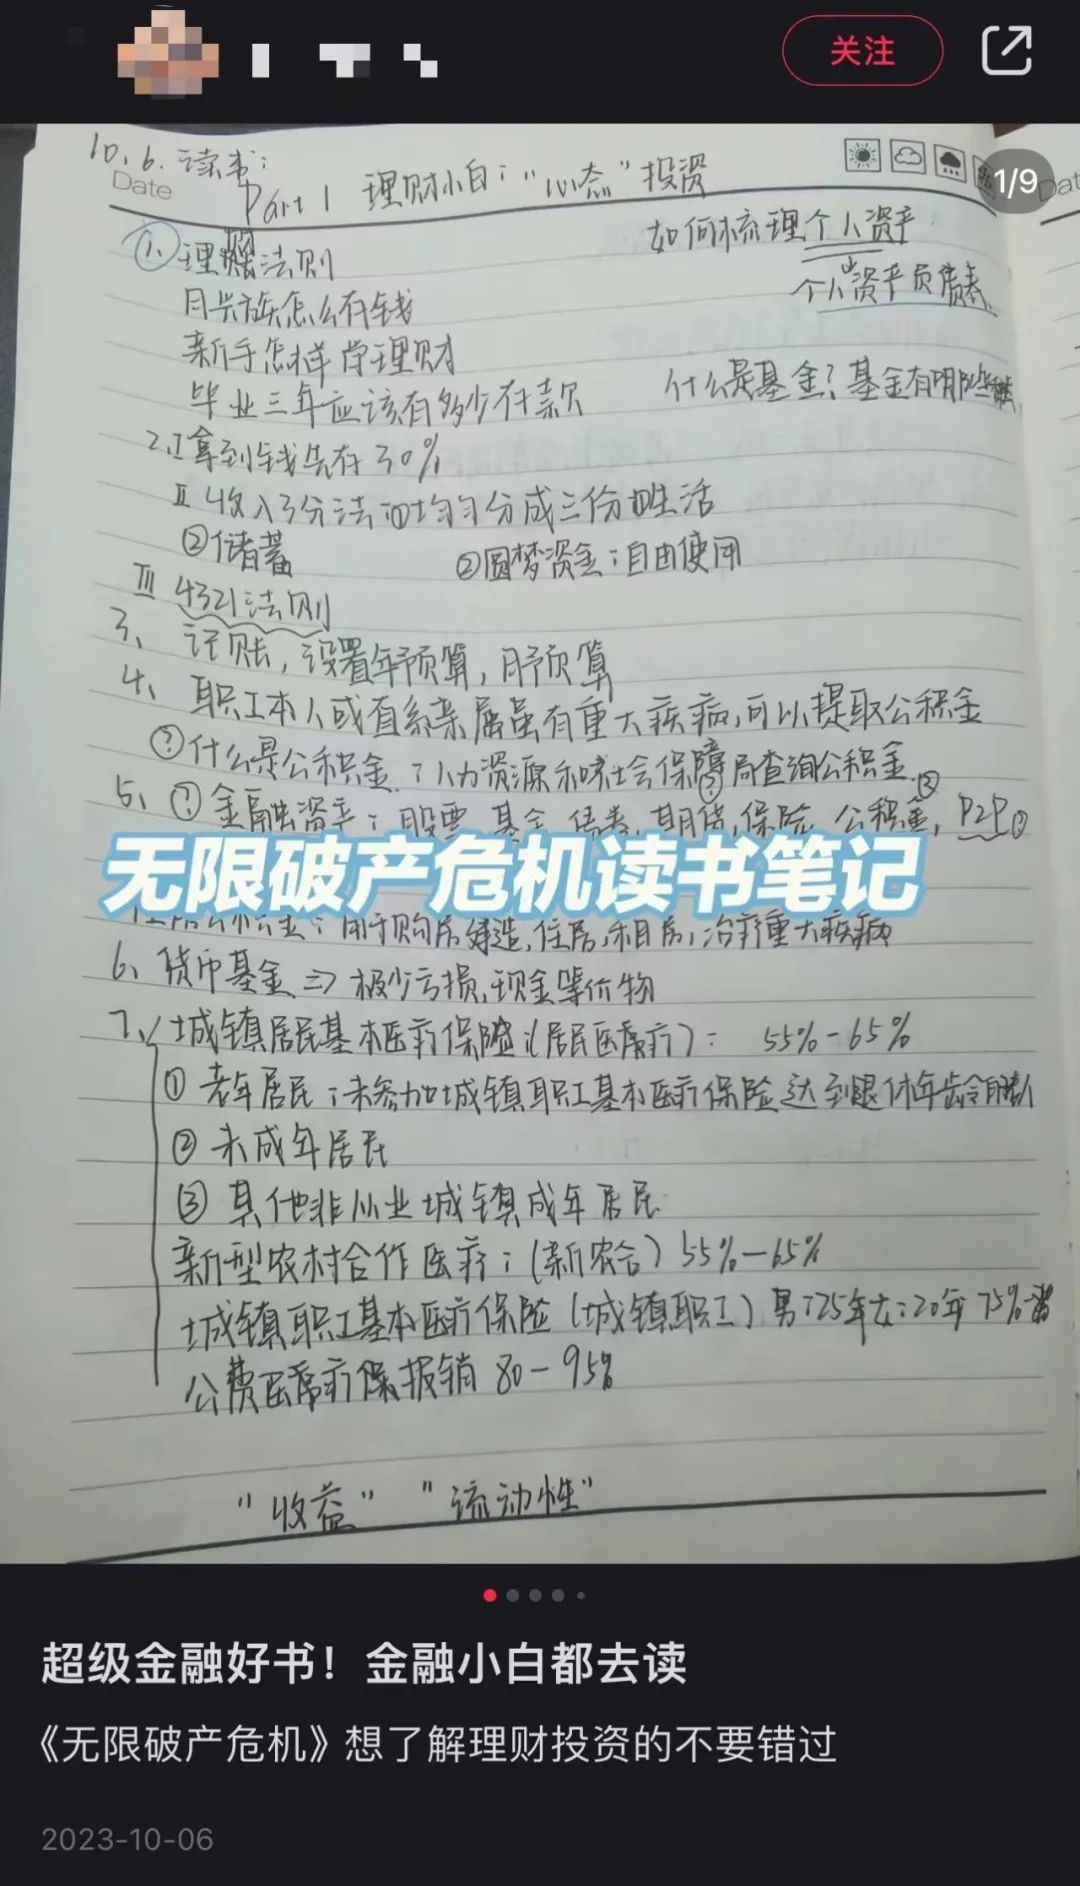 关注
1/9
10.6.读书:
Date
Part 1 理财小白:“心态”投资
如何梳理个人资产
个人资产负债表
1. 理财法则
月光族怎么存钱
新手怎样学理财
什么是基金?基金有哪些种类
毕业三年应该有多少存款
2.I拿到钱先存30%
II 收入3分法:①均匀分成三份 生活
②储蓄
②圆梦资金:自由使用
III 4321法则
3、记账,设置年预算,月预算
4、职工本人或直系亲属虽有重大疾病,可以提取公积金
?什么是公积金?人力资源和社会保障局查询公积金
5、①金融资产:股票,基金,债券,期货,保险,公积金,P2P
无限破产危机读书笔记
住房公积金:用于购房,建造,住房,租房,治疗重大疾病
6、货币基金⇒极少亏损,现金等价物
7、城镇居民基本医疗保险:(居民医疗): 55%-65%
①老年居民:未参加城镇职工基本医疗保险达到退休年龄
②未成年居民
③其他非从业城镇成年居民
新型农村合作医疗:(新农合)55%-65%
城镇职工基本医疗保险(城镇职工)男:25年女:20年 75%
公费医疗保报销80-95%
“收益” “流动性”
超级金融好书!金融小白都去读
《无限破产危机》想了解理财投资的不要错过
2023-10-06